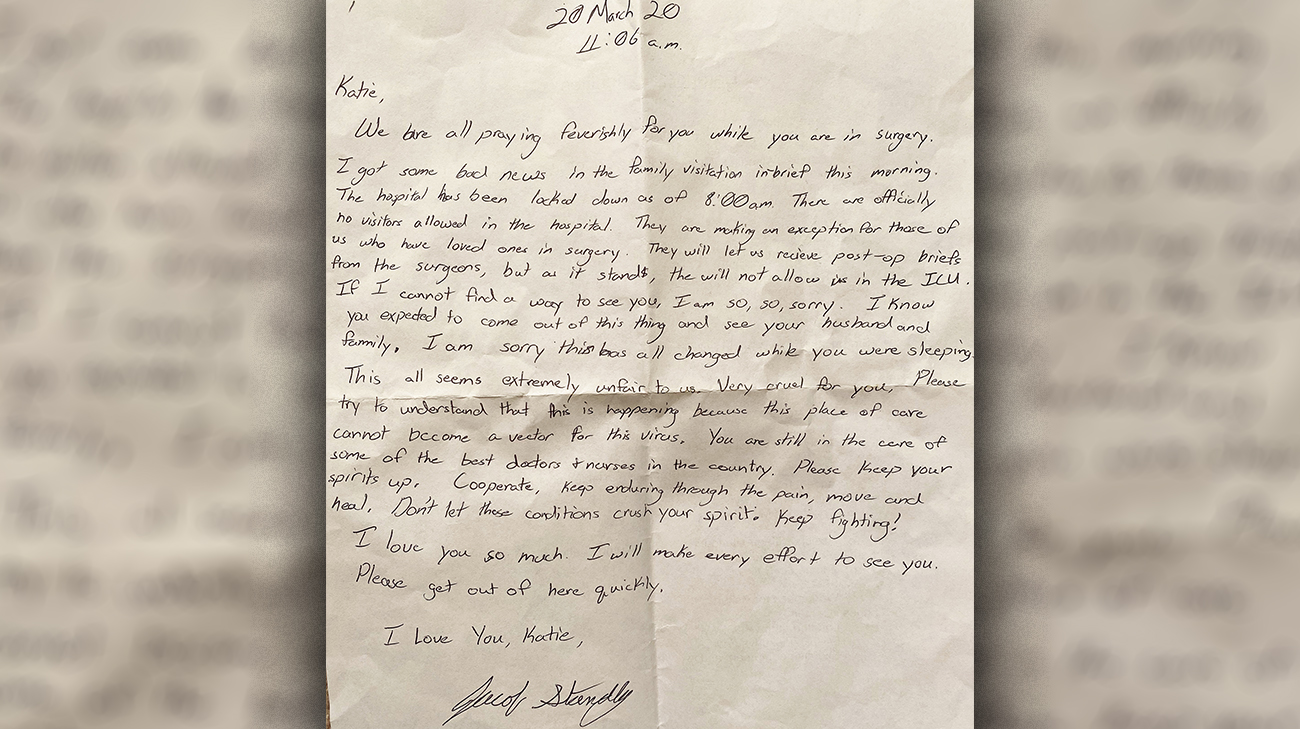 20 March 20
11:06 a.m.
Katie,
We are all praying feverishly for you while you are in surgery.
I got some bad news in the family visitation inbrief this morning.
The hospital has been locked down as of 8:00am. There are officially
no visitors allowed in the hospital. They are making an exception for those of
us who have loved ones in surgery. They will let us recieve post-op briefs
from the surgeons, but as it stands, the will not allow us in the ICU.
If I cannot find a way to see you, I am so, so, sorry. I know
you expected to come out of this thing and see your husband and
family. I am sorry this has all changed while you were sleeping.
This all seems extremely unfair to us. Very cruel for you. Please
try to understand that this is happening because this place of care
cannot become a vector for this virus. You are still in the care of
some of the best doctors + nurses in the country. Please keep your
spirits up. Cooperate, keep enduring through the pain, move and
heal. Don't let these conditions crush your spirit. Keep fighting!
I love you so much. I will make every effort to see you.
Please get out of here quickly.
I Love You, Katie,
Jacob Standly